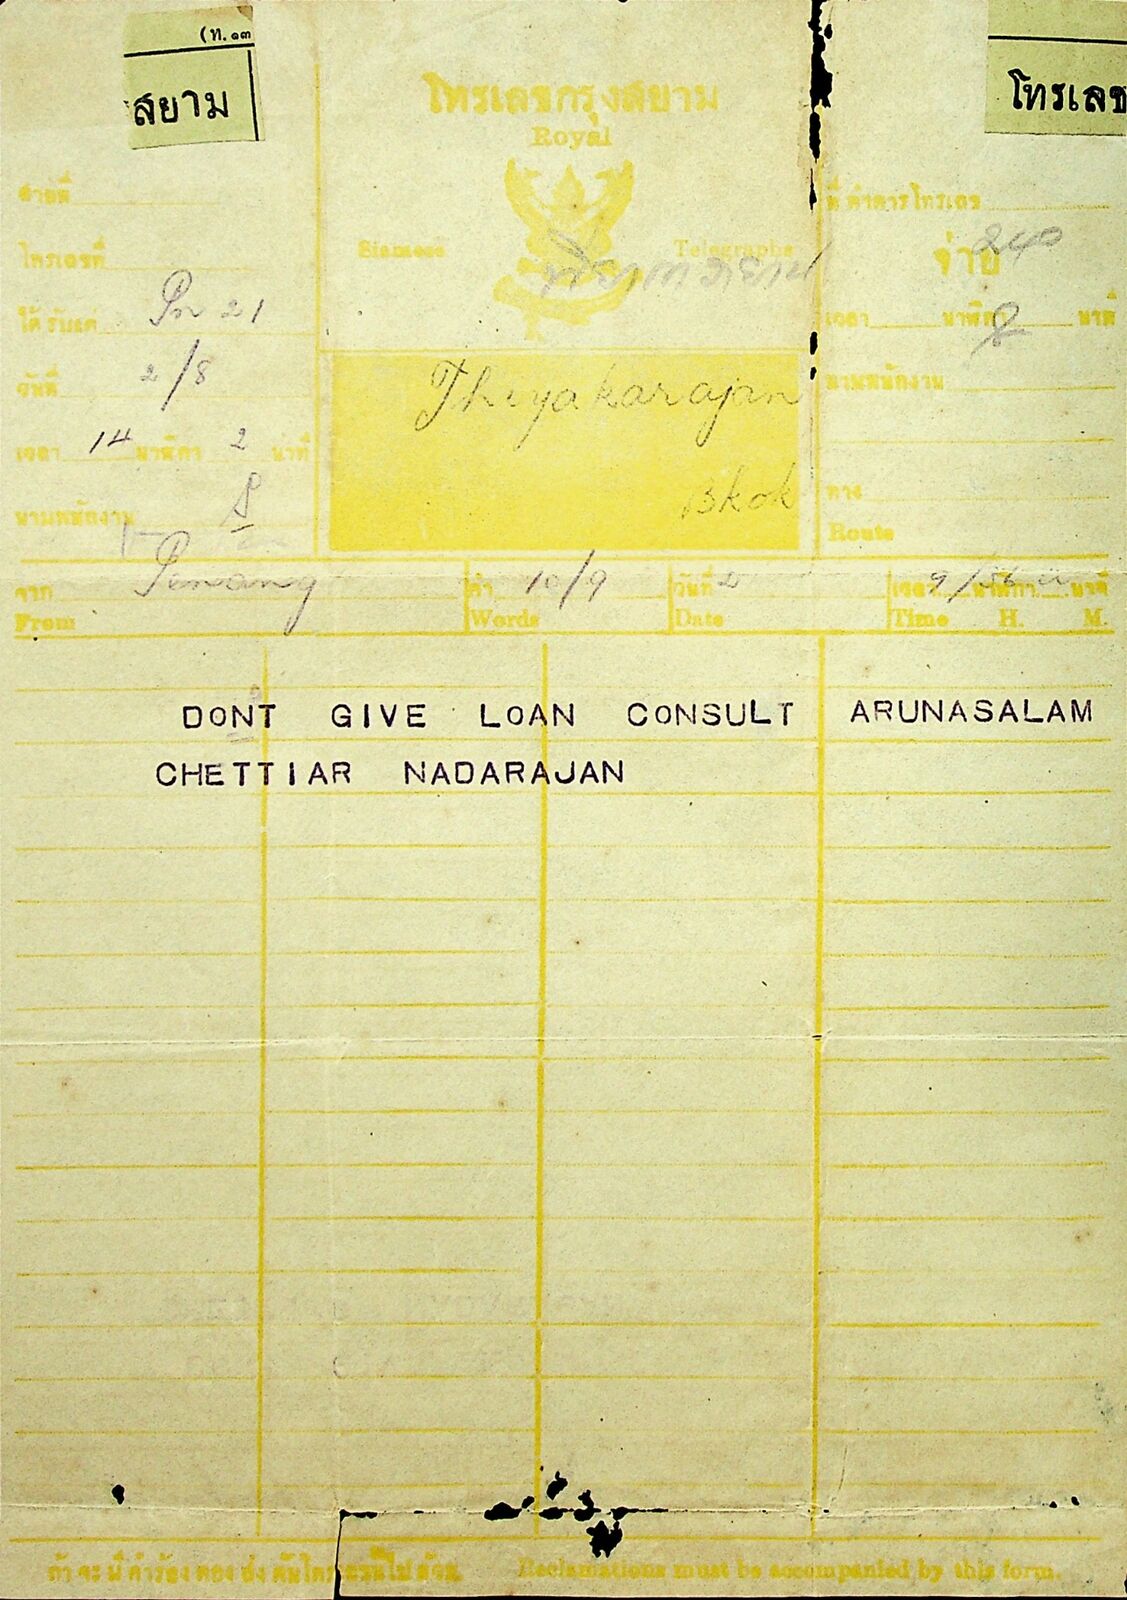 (ท.๑๓
สยาม
โทรเลข
โทรเลขกรุงสยาม
Royal
Siamese Telegraphs
สายที่
โทรเลขที่
ได้รับแต่ Pn 21
วันที่ 2/8
เวลา 14 นาฬิกา 2 นาที
นามพนักงาน
ที่ทำการโทรเลข
จ่าย
เวลา นาฬิกา นาที
นามพนักงาน
ทาง
Route
Thiyakarajan
Bkok
จาก Penang คำ 10/9 วันที่ 2 เวลา 9/56 นาฬิกา นาที
From Words Date Time H. M.
DONT GIVE LOAN CONSULT ARUNASALAM
CHETTIAR NADARAJAN
Reclamations must be accompanied by this form.